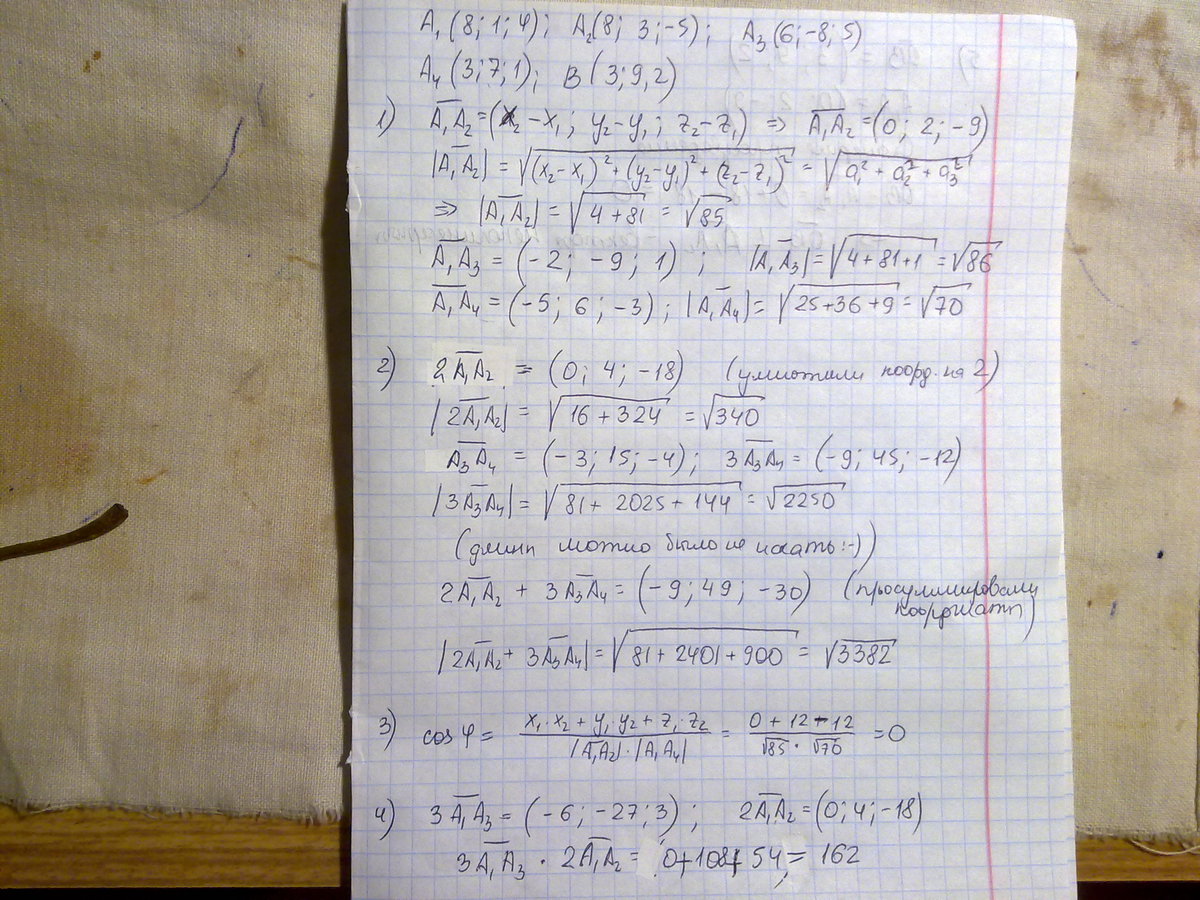 A₁ (8; 1; 4); A₂(8; 3; -5); A₃(6; -8; 5)
A₄ (3; 7; 1); B (3; 9, 2)
1) A̅₁A̅₂ = (x₂ - x₁; y₂ - y₁; z₂ - z₁) => A̅₁A̅₂ = (0; 2; -9)
|A̅₁A̅₂| = √((x₂-x₁)² + (y₂-y₁)² + (z₂-z₁)²) = √(a₁² + a₂² + a₃²)
=> |A̅₁A̅₂| = √(4+81) = √85
A̅₁A̅₃ = (-2; -9; 1); |A̅₁A̅₃| = √(4+81+1) = √86
A̅₁A̅₄ = (-5; 6; -3); |A̅₁A̅₄| = √(25+36+9) = √70
2) 2A̅₁A̅₂ = (0; 4; -18) (умножили коорд. на 2)
|2A̅₁A̅₂| = √(16+324) = √340
A̅₃A̅₄ = (-3; 15; -4); 3A̅₃A̅₄ = (-9; 45; -12)
|3A̅₃A̅₄| = √(81+2025+144) = √2250
(длины можно было не искать :-))
2A̅₁A̅₂ + 3A̅₃A̅₄ = (-9; 49; -30) (просуммировали
координаты)
|2A̅₁A̅₂ + 3A̅₃A̅₄| = √(81+2401+900) = √3382
3) cos φ = (x₁·x₂ + y₁·y₂ + z₁·z₂)/(|A̅₁A̅₂|·|A₁A₄|) = (0+12-12)/(√85·√70) = 0
4) 3A̅₁A̅₃ = (-6; -27; 3); 2A̅₁A̅₂ = (0; 4; -18)
3A̅₁A̅₃ · 2A̅₁A̅₂ = 0+108+54 = 162